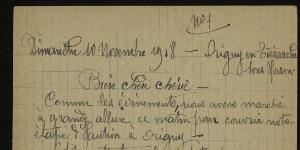 No 1
Dimanche 10 Novembre 1918 — Origny en Thiérache
Bien chère chérie —
Comme les évènements, nous avons marché
à grande allure, ce matin pour couvrir notre
étape d'Hautin à Origny —